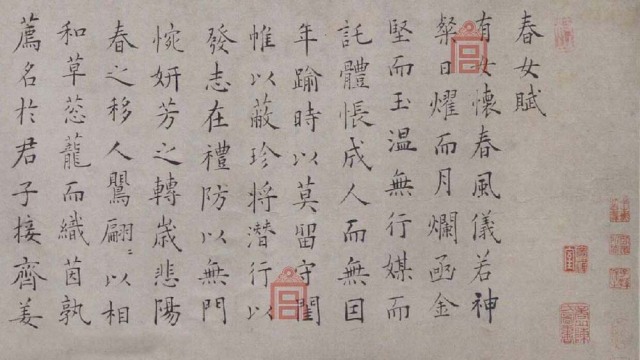 春女賦
有女懷春風儀若神
粲日燿而月爛函金
堅而玉溫無行媒而
託體悵成人而無因
年踰時以莫留守閨
帷以蔽珍將潛行以
發志在禮防以無門
惋妍芳之轉歲悲陽
春之移人鶩翩〻以相
和草蔥蘢而織茵孰
薦名於君子接齊姜